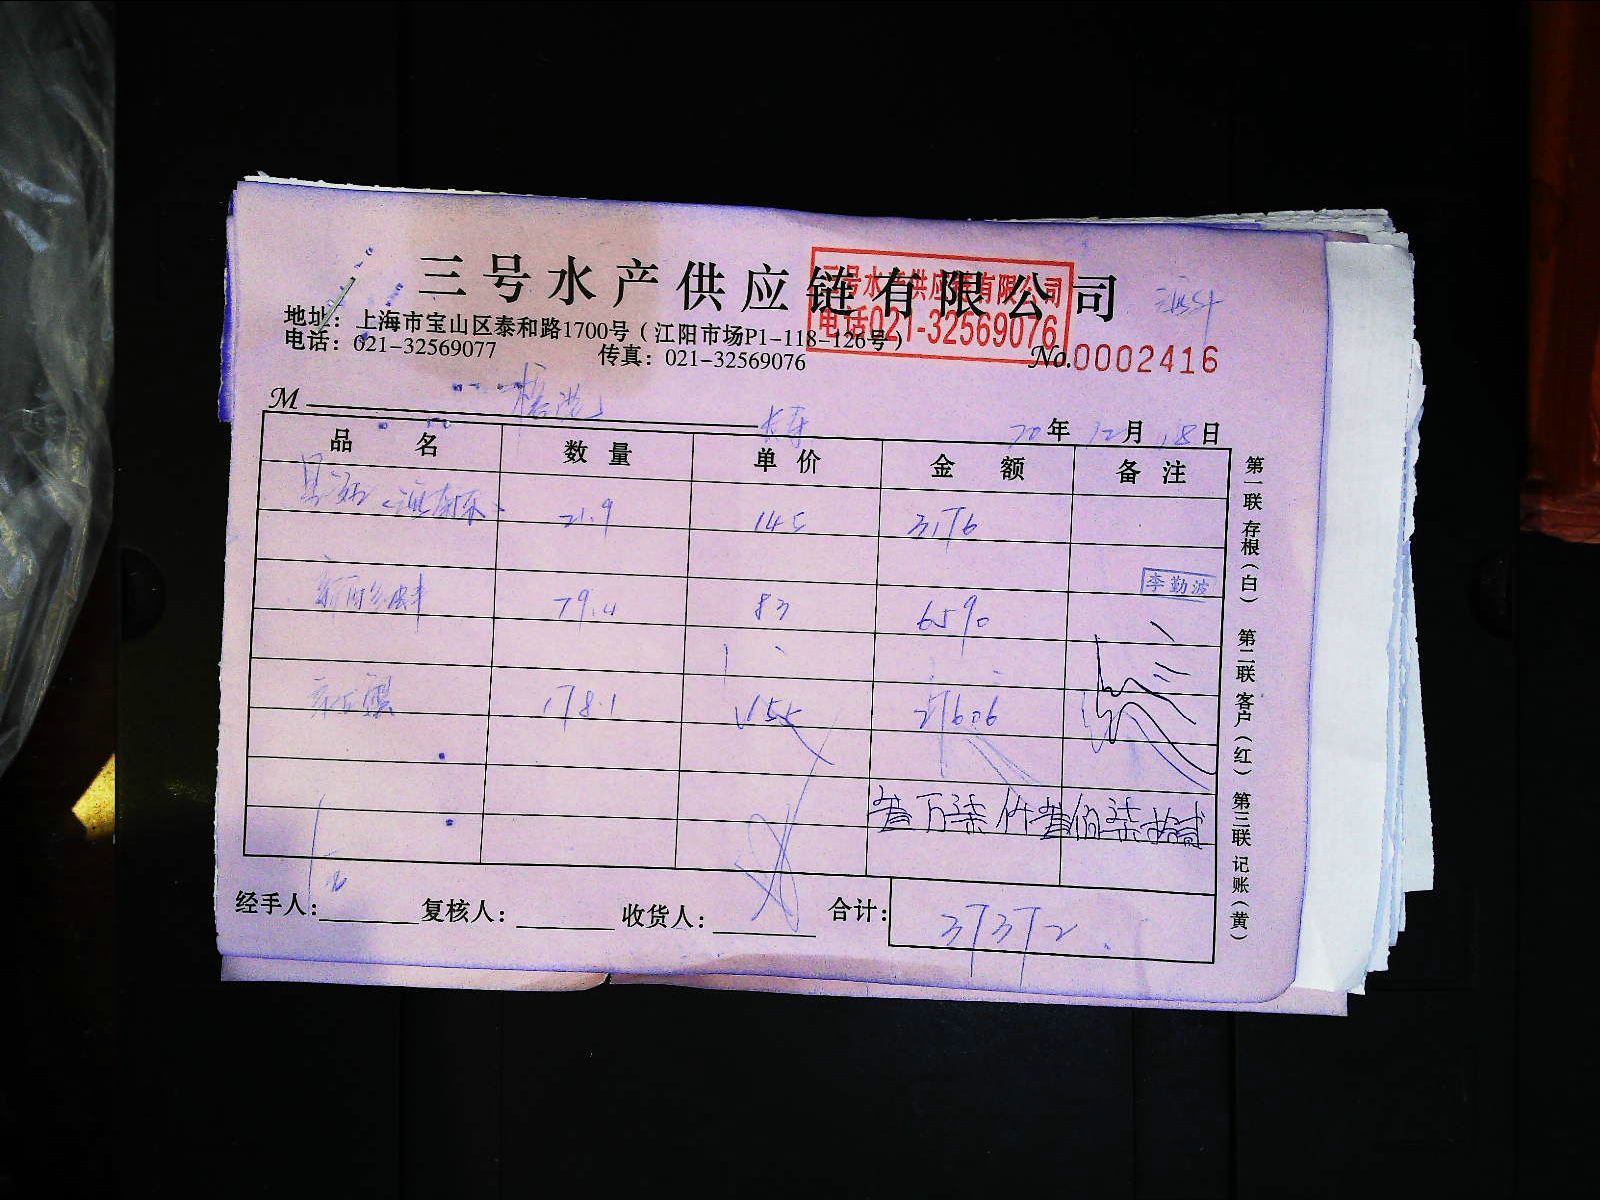 三号水产供应链有限公司
三号水产供应链有限公司
电话021-32569076
地址：上海市宝山区泰和路1700号（江阳市场P1-118-126号）
电话：021-32569077 传真：021-32569076
No.0002416
M
20年12月18日
品名 数量 单价 金额 备注
21.9 145 3176
李勤波
79.4 83 6590
178.1 155 27606
叁万柒仟叁佰柒拾贰
经手人： 复核人： 收货人： 合计： 37372
第一联存根（白） 第二联客户（红） 第三联记账（黄）